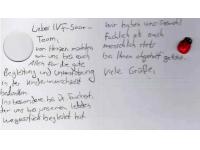 Lieber IVF-Saar-
Team,
von Herzen möchten
wir uns bei euch
Allen für die gute
Begleitung und Unterstützung
in der Kinderwunschzeit
bedanken.
Insbesondere bei Dr. Fuchert,
der uns bei unserem letzten
Wegesstück begleitet hat.
Wir haben uns
Fachlich als auch
menschlich stets
bei Ihnen aufgehoben gefühlt.
Viele Grüße,